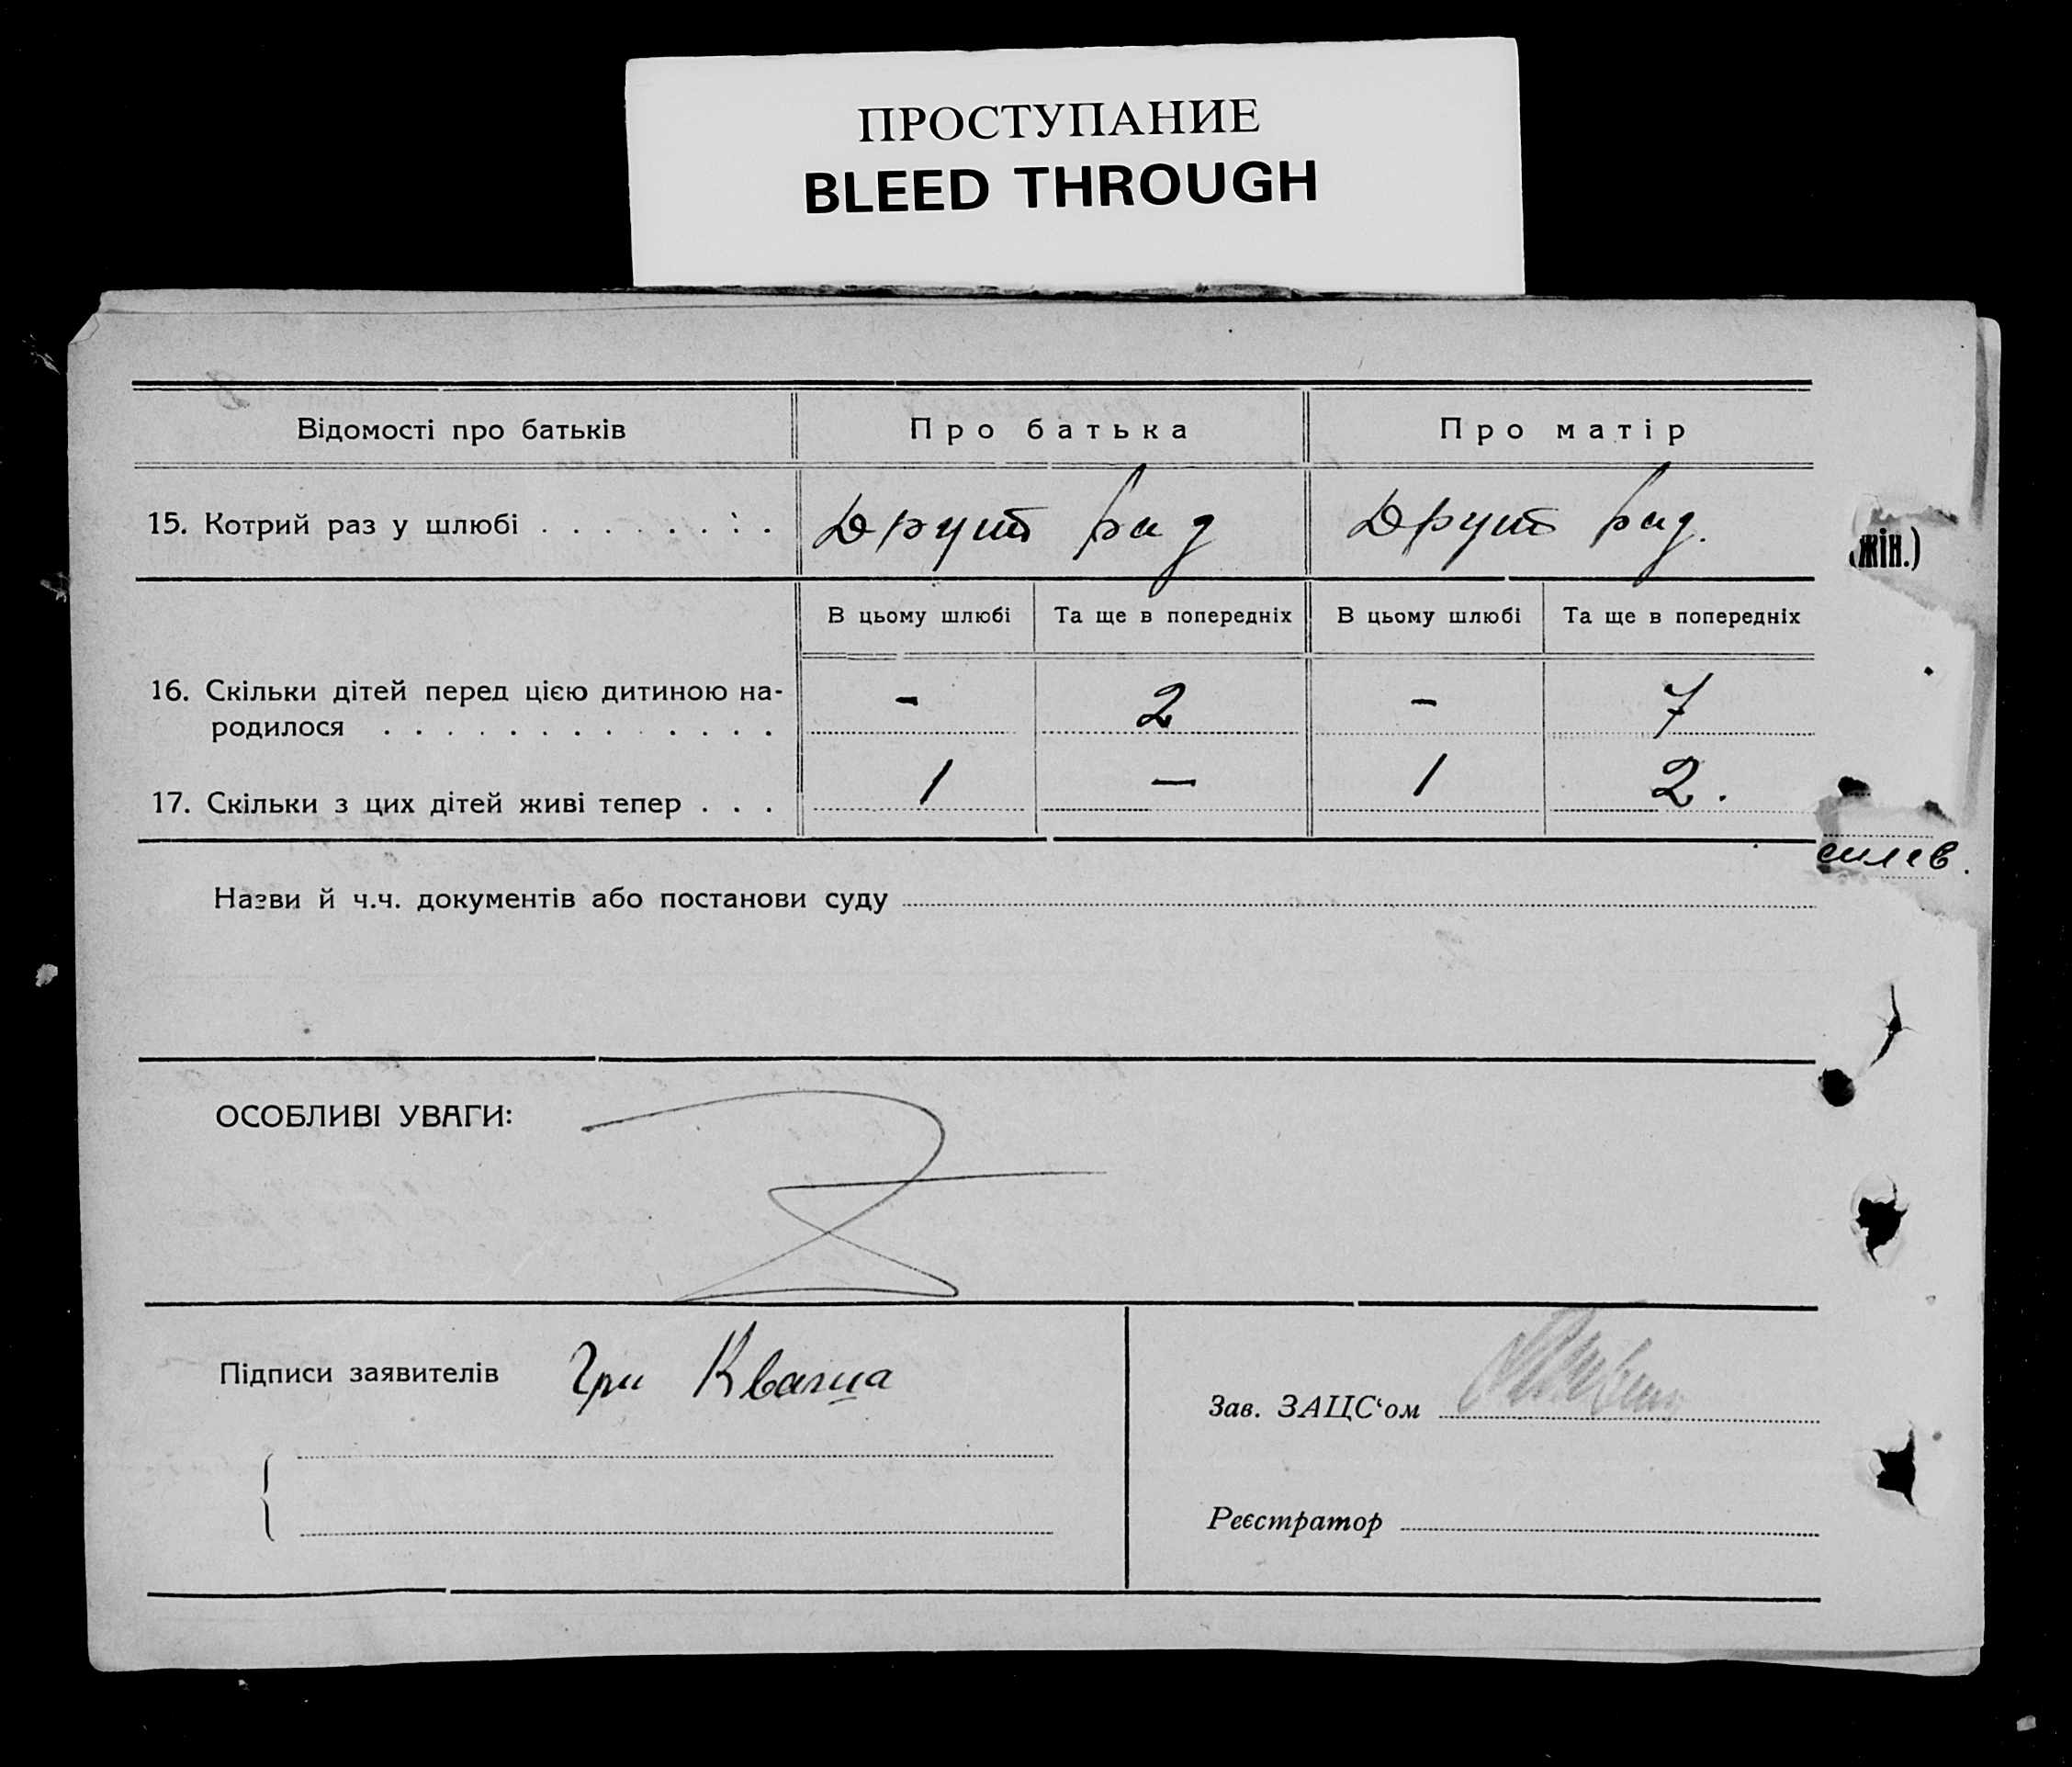 ПРОСТУПАНИЕ
BLEED THROUGH
Відомості про батьків Про батька Про матір
15. Котрий раз у шлюбі . . . . . . . . Другий раз Другий раз.
(жін.)
В цьому шлюбі Та ще в попередніх В цьому шлюбі Та ще в попередніх
16. Скільки дітей перед цією дитиною на-
родилося . . . . . . . . . . . . . - 2 - 7
17. Скільки з цих дітей живі тепер . . . 1 — 1 2.
Назви й ч.ч. документів або постанови суду
ОСОБЛИВІ УВАГИ:
Підписи заявителів Гри Кваша
Зав. ЗАЦС‘ом
Реєстратор